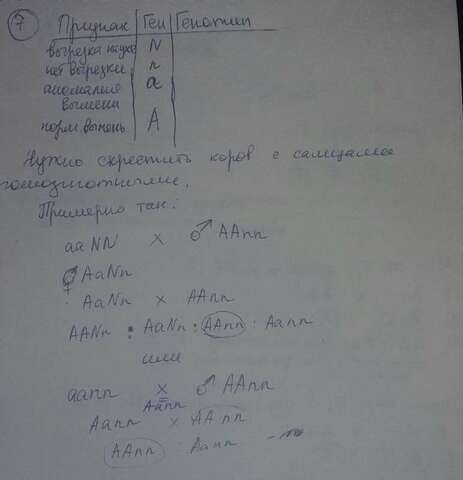 7 Признак Ген Генотип
вырезка на ухе N
нет вырезки n
аномалия a
вымени
норм. вымень A
Нужно скрестить коров с самцами
гомозиготными.
Примерно так:
aa NN x ♂ AAnn
♀ AaNn
AaNn x AAnn
AANn : AaNn : AAnn : Aann
или
aann x ♂ AAnn
Aann
Aann x AAnn
AAnn : Aann